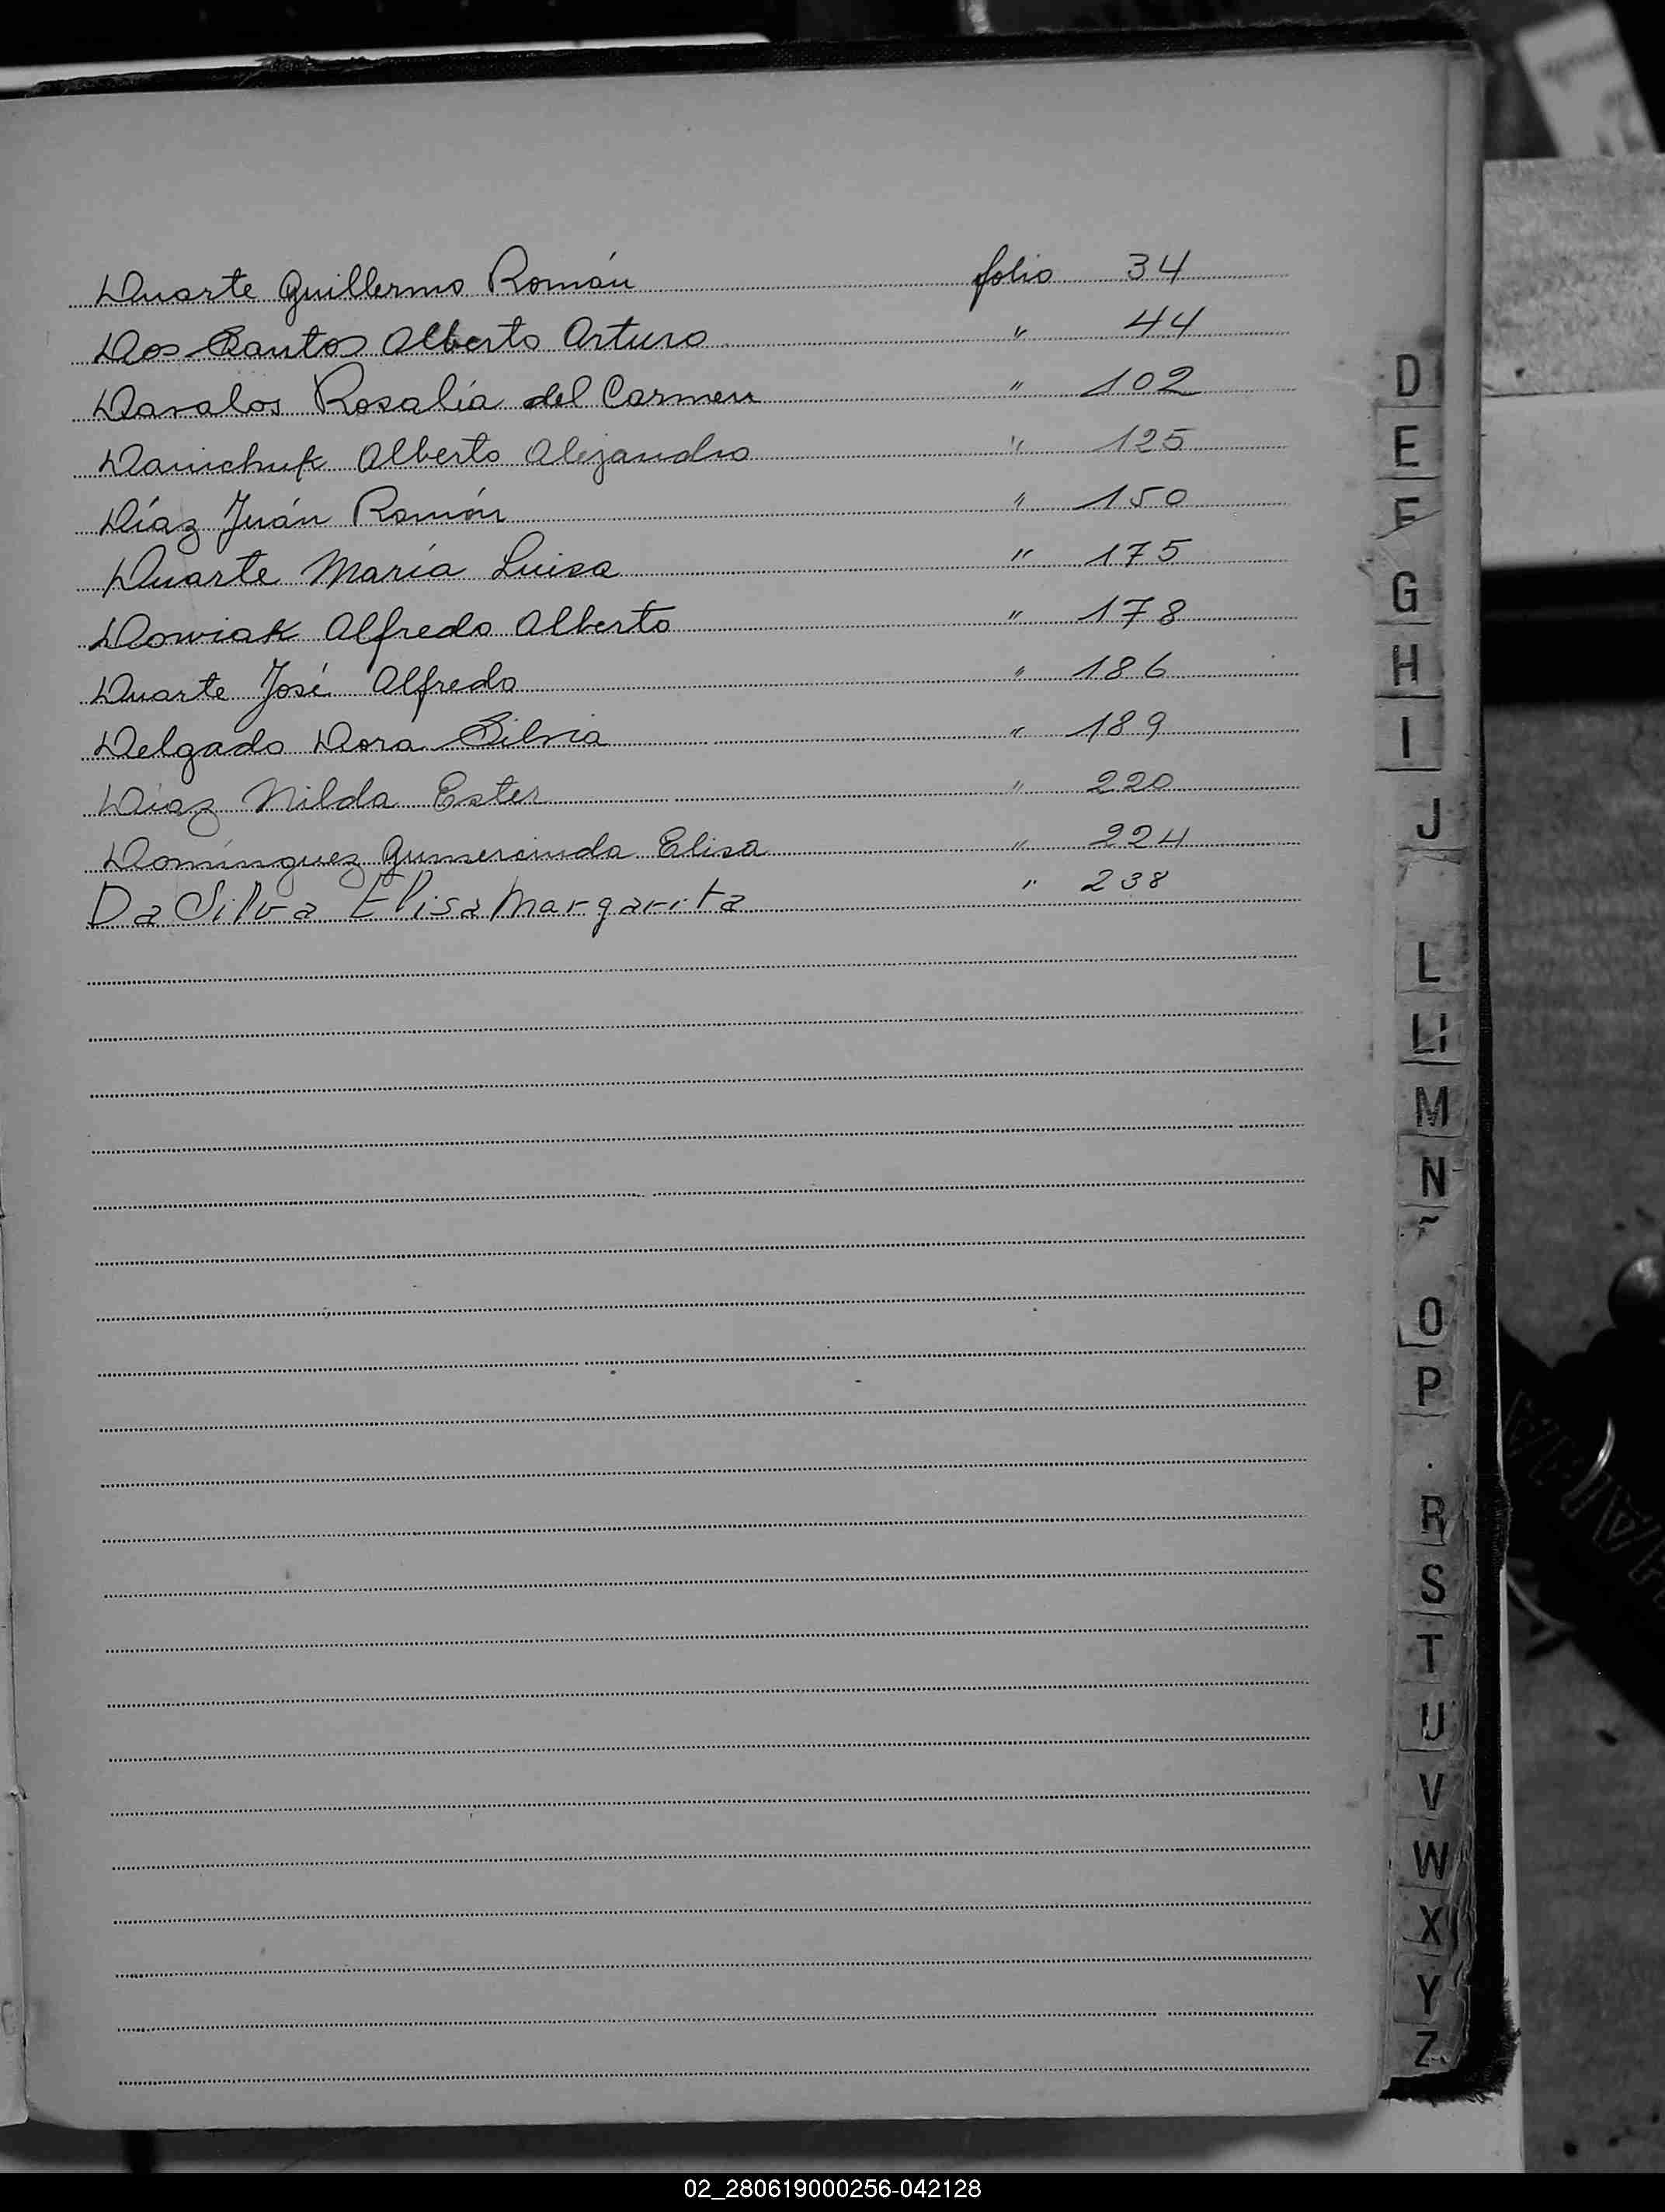 Duarte Guillermo Román folio 34
Dos Santos Alberto Arturo " 44
Davalos Rosalía del Carmen " 102
Danichuk Alberto Alejandro " 125
Díaz Juán Ramón " 150
Duarte María Luisa " 175
Dowiak Alfredo Alberto " 178
Duarte José Alfredo " 186
Delgado Dora Silvia " 189
Diaz Nilda Ester " 220
Domínguez Gumercinda Elisa " 224
Da Silva Elisa Margarita " 238
D
E
F
G
H
I
J
L
Ll
M
N
O
P
R
S
T
U
V
W
X
Y
Z
02_280619000256-042128